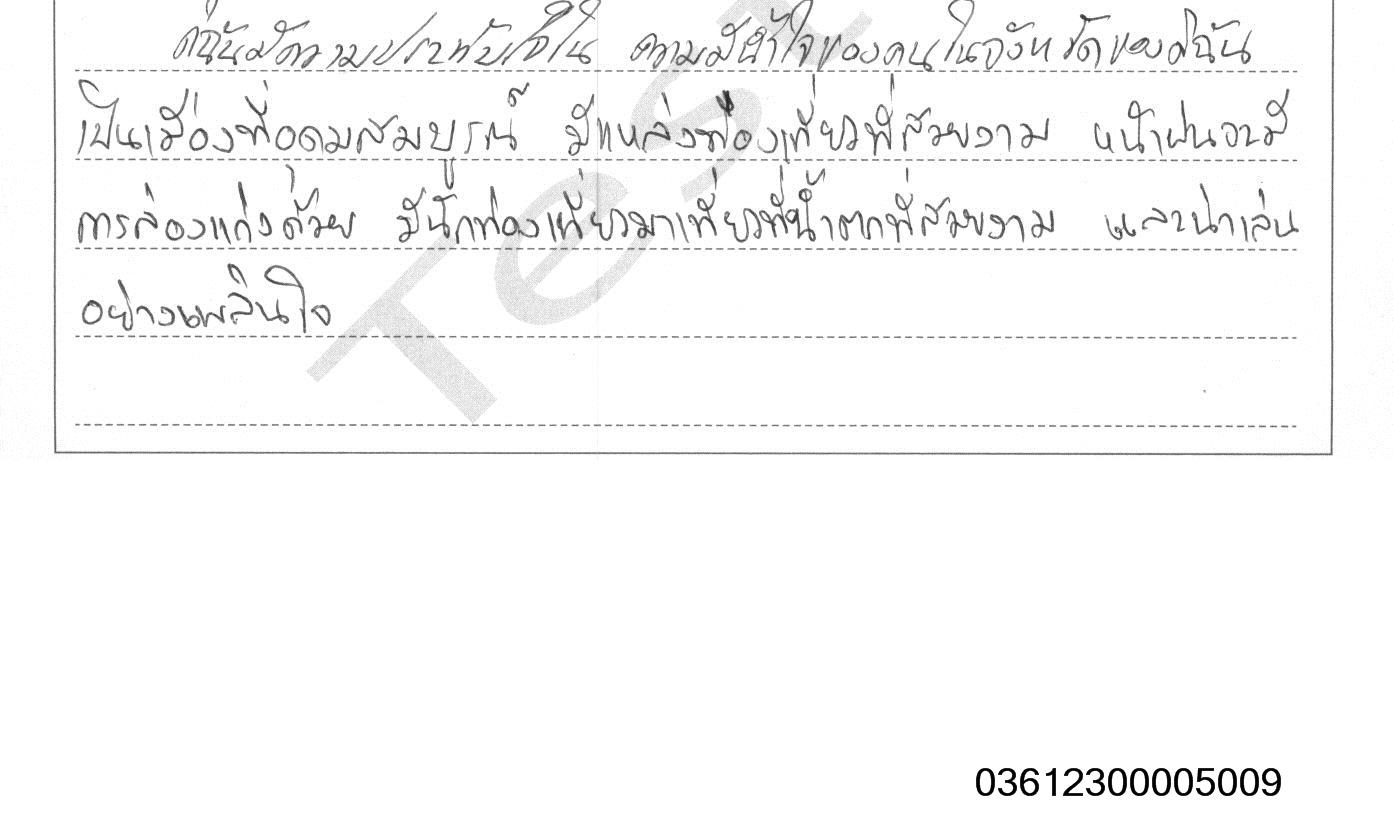 ดิฉันมีความประทับใจใน ความมีน้ำใจของคนในจังหวัดของดิฉัน
เป็นเมืองที่อุดมสมบูรณ์ มีแหล่งท่องเที่ยวที่สวยงาม หน้าฝนจะมี
การล่องแก่งด้วย มีนักท่องเที่ยวมาเที่ยวที่น้ำตกที่สวยงาม และน่าเล่น
อย่างเพลินใจ
Test
03612300005009